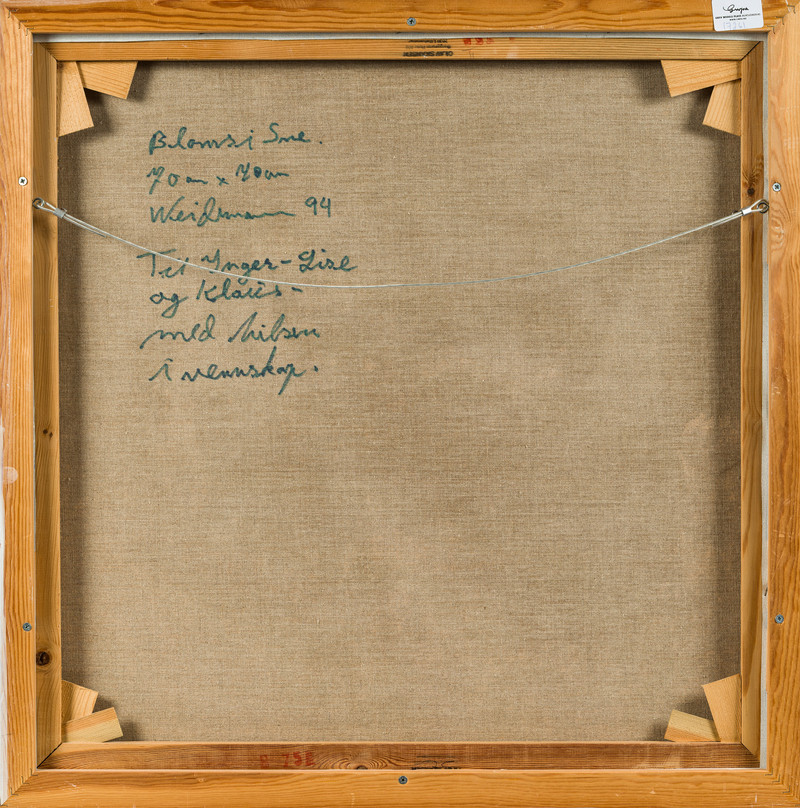 Blomst i Snø.
70 cm x 70 cm
Weidemann 94
Til Inger-Lise
og Klaus-
med hilsen
i vennskap.
B 75E